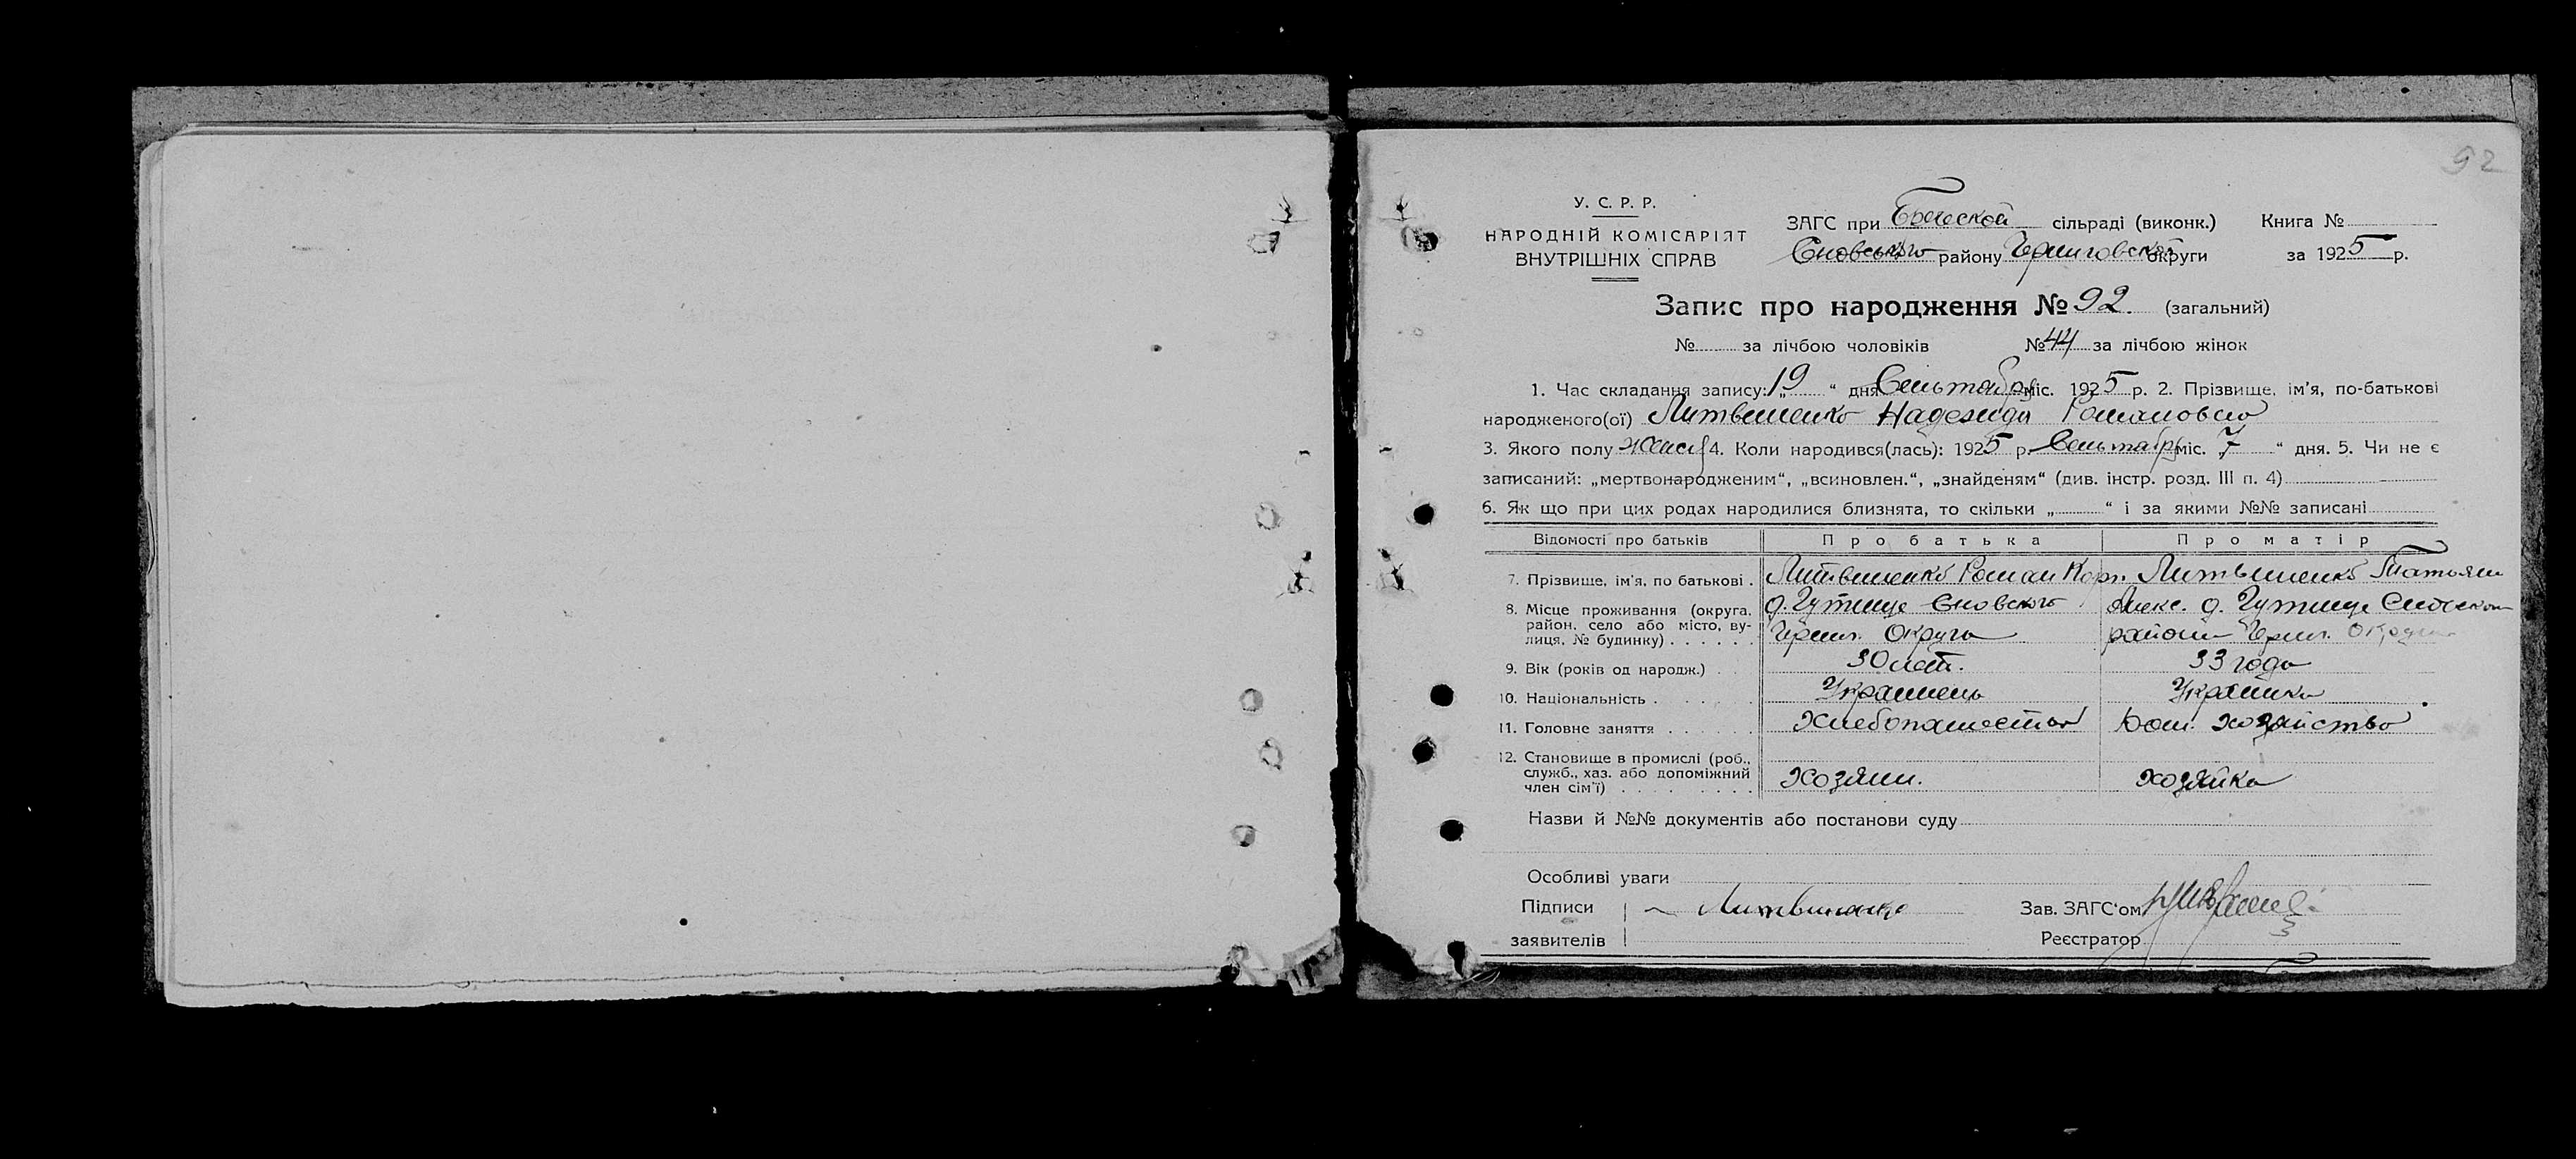 92
У. С. Р. Р.
НАРОДНІЙ КОМІСАРІЯТ
ВНУТРІШНІХ СПРАВ
ЗАГС при сільраді (виконк.) Книга №
Сновського району Черниговской округи за 1925 р.
Запис про народження № 92. (загальний)
№ за лічбою чоловіків № 44 за лічбою жінок
1. Час складання запису: „19“ дня Сентября міс. 1925 р. 2. Прізвище, ім'я, по-батькові
народженого(ої) Литвиненко Надежда Романовна
3. Якого полу женск 4. Коли народився(лась): 1925 р. Сентября міс. „7“ дня. 5. Чи не є
записаний: „мертвонародженим“, „всиновлен.“, „знайденям“ (див. інстр. розд. III п. 4)
6. Як що при цих родах народилися близнята, то скільки „ “ і за якими №№ записані
Відомості про батьків Про батька Про матір
7. Прізвище, ім'я, по батькові . Литвиненко Роман Литвиненко Татьяна
8. Місце проживання (округа, д. Гутище Сновского Алекс. д. Гутище
район, село або місто, ву-
лиця, № будинку) . . . . . . Черниг. Округа района Черниг. Округи
9. Вік (років од народж.) . . 30 лет. 33 года
10. Національність . . . . . . Украинець Украинка
11. Головне заняття . . . . . . Хлебопашество Дом. хозяйство
12. Становище в промислі (роб.,
служб., хаз. або допоміжний
член сім'ї) . . . . . . . . . Хозяин. хозяйка
Назви й №№ документів або постанови суду
Особливі уваги
Підписи Литвиненко Зав. ЗАГС'ом
заявителів Реєстратор